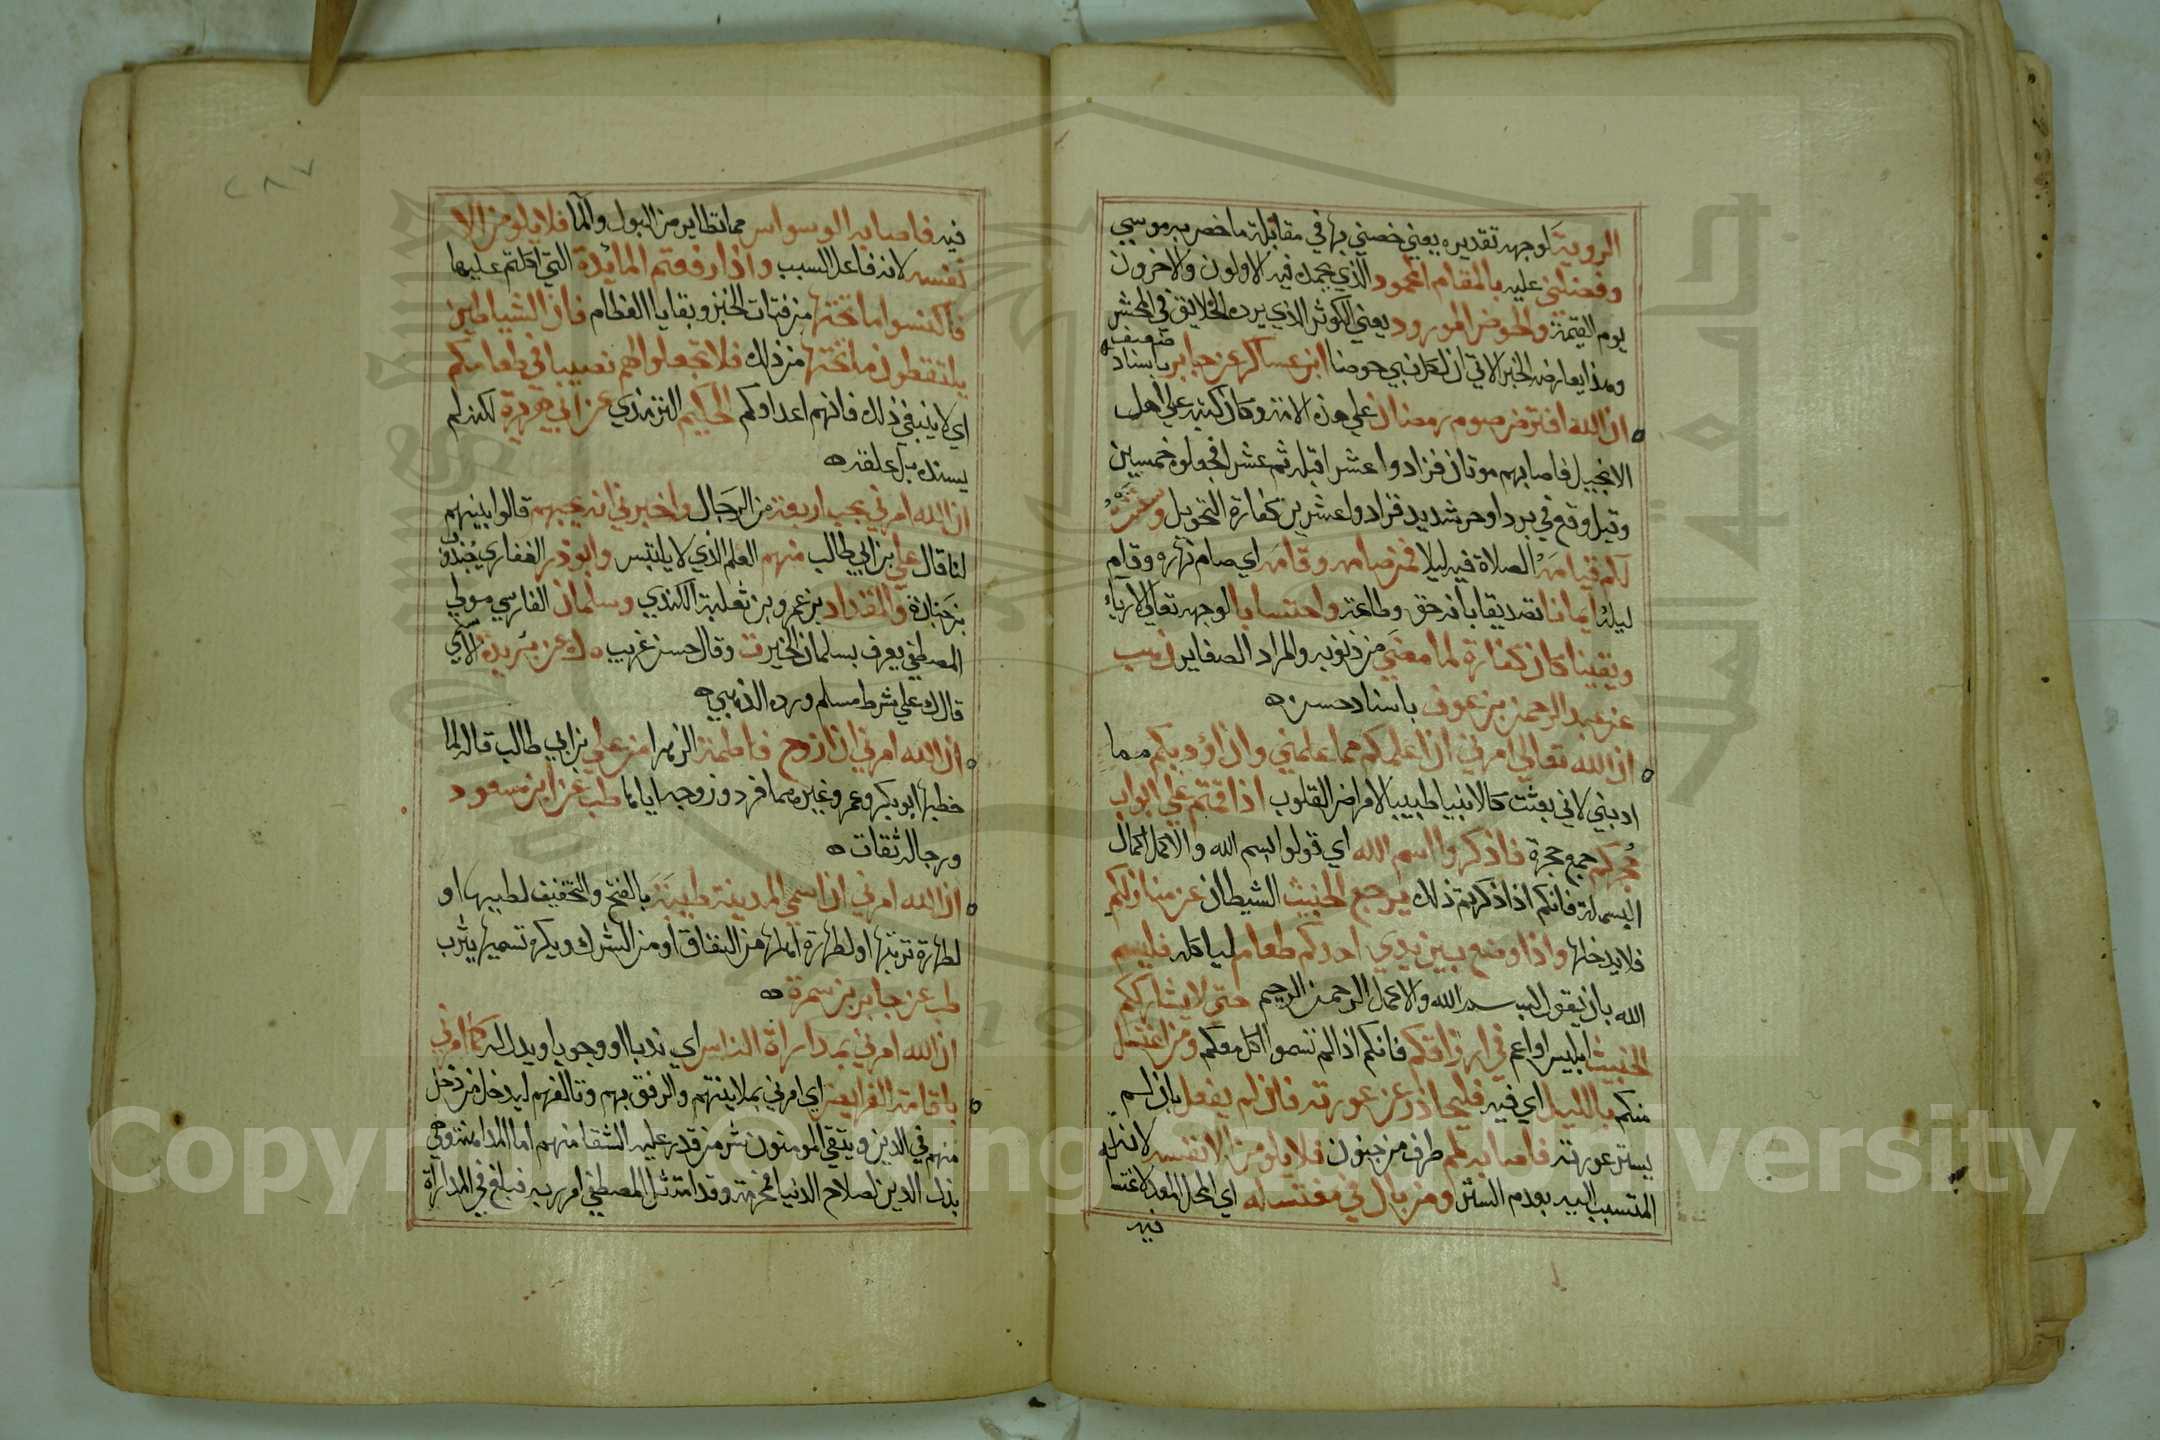 الروية لوجهه تقديره يعني خصني بها في مقابلة ما خص به موسى
وفضلني عليه بالمقام المحمود الذي يحمده فيه الاولون والاخرون
يوم القيمة والحوض المورود يعني الكوثر الذي يرده الخلايق في المحشر
وهذا يعارضه الخبر الاتي ان لكل نبي حوضا ابن عساكر عن جابر باسناد ضعيف
ان الله افترض صوم رمضان علي هذه الامة وكان كتبه علي اهل
الانجيل فاصابهم موتان فزادوا عشرا قبله ثم عشرا فجعلوه خمسين
وقيل وقع في برد او حر شديد فزادوا عشرين كفارة التحويل وسننت
لكم قيامه الصلاة فيه ليلا فمن صامه وقامه اي صام نهاره وقام
ليله ايمانا تصديقا بانه حق وطاعة واحتسابا لوجهه تعالي لا رياء
ويقينا كان كفارة لما مضي من ذنوبه والمراد الصغاير ن هب
عن عبد الرحمن بن عوف باسناد حسن ه
ان الله تعالي امرني ان اعلمكم مما علمني وان اؤدبكم مما
ادبني لاني بعثت كالانبيا طبيبا لامراض القلوب اذا قمتم علي ابواب
حجركم جمع حجرة فاذكروا اسم الله اي قولوا بسم الله والاكمل اكمال
البسملة فانكم اذا ذكرتم ذلك يرجع الخبيث الشيطان عن منازلكم
فلا يدخلها واذا وضع بين يدي احدكم طعام لياكله فليسم
الله بان يقول بسم الله والاكمل الرحمن الرحيم حتي لا يشارككم
الخبيث ابليس او اعم في ارزاقكم فانكم اذا لم تسموا اكل معكم ومن اغتسل
منكم بالليل اي فيه فليحاذر عن عورته فان لم يفعل بان لم
يستر عورته فاصابه لمم طرف من جنون فلا يلومن الا نفسه لانه
المتسبب اليه بعدم الستر ومن بال في مغتسله اي المحل المعد لاغتسا
فيه
٢٨٧
فيه فاصابه الوسواس مما تطاير من البول والما فلا يلومن الا
نفسه لانه فاعل السبب واذا رفعتم المائدة التي اكلتم عليها
فاكنسوا ما تحتها من فتات الخبز وبقايا الطعام فان الشياطين
يلتقطون ما تحتها من ذلك فلا تجعلوا لهم نصيبا في طعامكم
اي لا ينبغي ذلك فانهم اعداوكم الحكيم الترمذي عن ابي هريرة لكنه لم
يسنده بل علقه ه
ان الله امرني بحب اربعة من الرجال واخبرني انه يحبهم قالوا بينهم
لنا قال علي بن ابي طالب منهم العلم الذي لا يلتبس وابو ذر الغفاري جندب
بن جنادة والمقداد بن عمرو بن ثعلبة الكندي وسلمان الفارسي مولي
المصطفي يعرف بسلمان الخير ت وقال حسن غريب ه ك عن بريدة الاسلمي
قال ك علي شرط مسلم ورده الذهبي ه
ان الله امرني ان ازوج فاطمة الزهرا من علي بن ابي طالب قاله لما
خطبها ابو بكر وعمر وغيرهما فرد وزوجه اياها طب عن ابن مسعود
ورجاله ثقات ه
ان الله امرني ان اسمي المدينة طيبة بالفتح والتخفيف لطيبها او
لطهارة تربتها او لطهارة اهلها من النفاق او من الشرك ويكره تسميتها يثرب
طب عن جابر بن سمرة ه
ان الله امرني بمداراة الناس اي ندبا او وجوبا ويدل له كما امرني
باقامة الفرايض اي امرني بملاينتهم والرفق بهم وتالفهم ليدخل من دخل
منهم في الدين ويتقي المومنون شر من قدر عليه الشقا منهم اما المداهنة وهي
بذل الدين لصلاح الدنيا فمحرمة وقد امتثل المصطفي امر ربه فبلغ في المداراة
Copyright © King Saud University